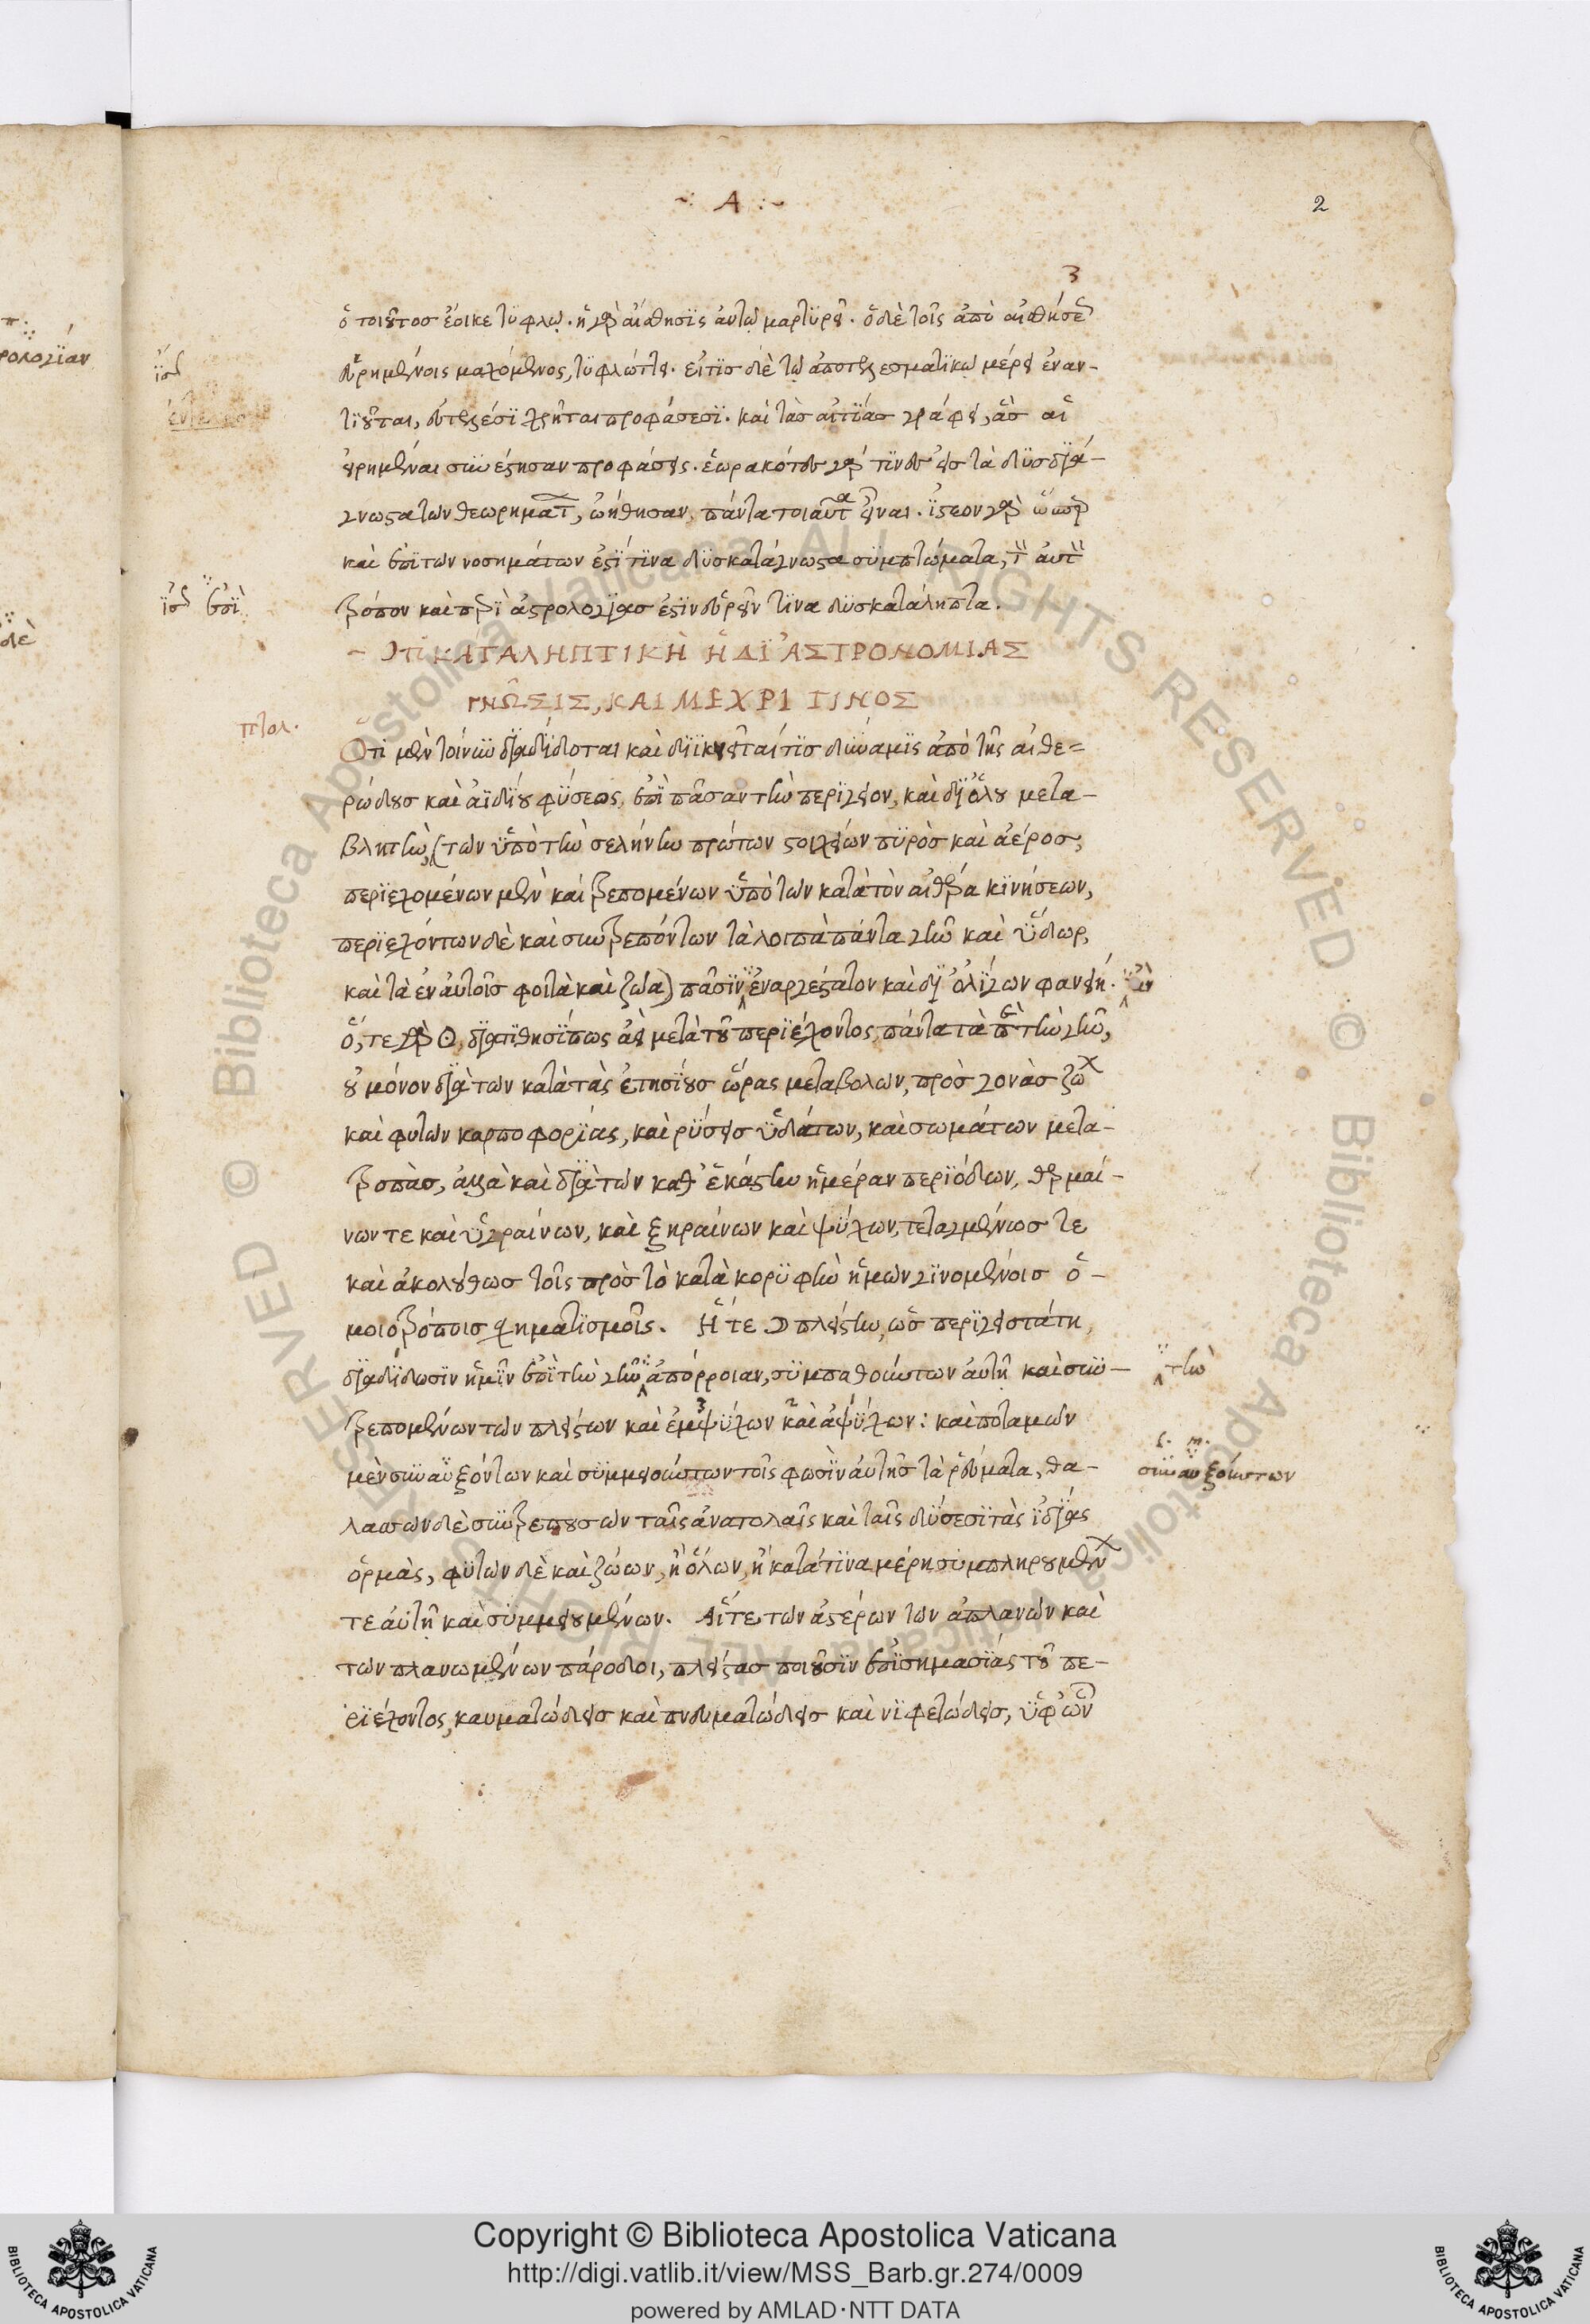 Α
2
3
ὁ τοιοῦτος ἔοικε τυφλῷ. ἡ γὰρ αἴσθησις αὐτῷ μαρτυρεῖ. ὁ δὲ τοῖς ἀπὸ αἰσθήσε
εὑρημένοις μαχόμενος, τυφλώττει. εἴ τις δὲ τῷ ἀποτελεσματικῷ μέρει ἐναν-
τιοῦται, εὐτελέσι χρῆται προφάσεσι. καὶ τὰς αἰτίας γράφει, ἃς αἱ
εἰρημέναι συνέστησαν προφάσεις. ἑωρακότες γάρ τινες εἰς τὰ δυσδιά-
γνωστα τῶν θεωρημάτ, ᾠήθησαν πάντα τοιαῦτα εἶναι. ἰστέον γὰρ ὥσπερ
καὶ ἐπὶ τῶν νοσημάτων ἐστί τινα δυσκατάγνωστα συμπτώματα, τ αὐτ
τρόπον καὶ περὶ ἀστρολογίας ἐστὶν εὑρεῖν τινα δυσκατάληπτα.
ἐπὶ
ὍΤΙ ΚΑΤΑΛΗΠΤΙΚῊ Ἡ ΔΙ ἈΣΤΡΟΝΟΜΙΑΣ
ΓΝΩ͂ΣΙΣ, ΚΑΙ ΜΕΧΡΙ ΤΙΝΟΣ
πτολ.
Ὅτι μὲν τοίνυν διαδίδοται καὶ διικνεῖταί τις δύναμις ἀπὸ τῆς αἰθε=
ρώδους καὶ ἀϊδίου φύσεως, ἐπὶ πᾶσαν τὴν περίγειον, καὶ δι' ὅλου μετα-
βλητὴν, (τῶν ὑπὸ τὴν σελήνην πρώτων στοιχείων πυρὸς καὶ ἀέρος,
περιεχομένων μὲν καὶ τρεπομένων ὑπὸ τῶν κατὰ τὸν αἰθέρα κινήσεων,
περιεχόντων δὲ καὶ συντρεπόντων τὰ λοιπὰ πάντα γῆν καὶ ὕδωρ,
καὶ τὰ ἐν αὐτοῖς φυτὰ καὶ ζῶα) πᾶσιν ἐναργέστατον καὶ δι' ὀλίγων φανείη. ἂν
ὅ, τε γὰρ ☉, διατίθησί πως ἀεὶ μετὰ τοῦ περιέχοντος, πάντα τὰ περὶ τὴν γῆν,
οὐ μόνον διὰ τῶν κατὰ τὰς ἐτησίους ὥρας μεταβολῶν, πρὸς γονὰς ζώ
καὶ φυτῶν καρποφορίας, καὶ ρύσεις ὑδάτων, καὶ σωμάτων μετα-
τροπὰς, ἀλλὰ καὶ διὰ τῶν καθ' ἑκάστην ἡμέραν περιόδων, θερμαί-
νων τε καὶ ὑγραίνων, καὶ ξηραίνων καὶ ψύχων, τεταγμένως τε
καὶ ἀκολούθως τοῖς πρὸς τὸ κατὰ κορυφὴν ἡμῶν γινομένοις ὁ-
μοιοτρόποις σχηματισμοῖς. Ἥ τε ☽ πλείστην, ὡς περιγειοτάτη,
διαδίδωσιν ἡμῖν ἐπὶ τὴν γῆν ἀπόρροιαν, συμπαθούντων αὐτῇ καὶ συν-
τὴν
τρεπομένων τῶν πλείστων καὶ ἐμψύχων καὶ ἀψύχων: καὶ ποταμῶν
μὲν συναυξόντων καὶ συμμειούντων τοῖς φωσὶν αὐτῆς τὰ ῥεύματα, θα-
συναυξούντων
λασσῶν δὲ συντρεπουσῶν ταῖς ἀνατολαῖς καὶ ταῖς δύσεσι τὰς ἰδίας
ὁρμὰς, φυτῶν δὲ καὶ ζώων, ἢ ὅλων, ἢ κατά τινα μέρη συμπληρουμέν
τε αὐτῇ καὶ συμμειουμένων. Αἵ τε τῶν ἀστέρων τῶν ἀπλανῶν καὶ
τῶν πλανωμένων πάροδοι, πλείστας ποιοῦσιν ἐπισημασίας τοῦ πε-
ριέχοντος, καυματώδεις καὶ πνευματώδεις καὶ νιφετώδεις, ὑφ' ὧν
Copyright © Biblioteca Apostolica Vaticana
http://digi.vatlib.it/view/MSS_Barb.gr.274/0009
powered by AMLAD·NTT DATA